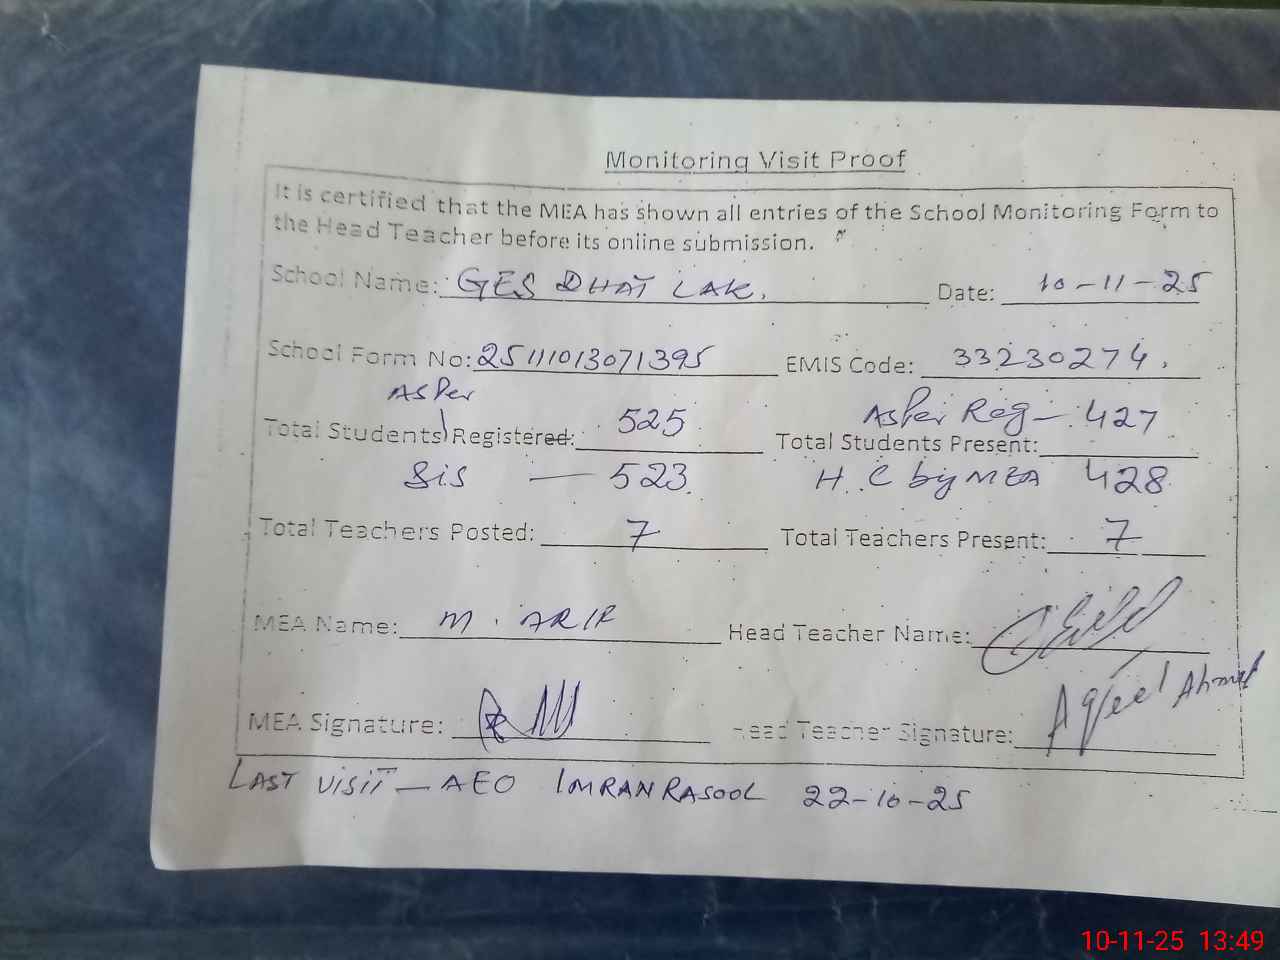 Monitoring Visit Proof
It is certified that the MEA has shown all entries of the School Monitoring Form to
the Head Teacher before its online submission.
School Name: GES DHAT LAK. Date: 10-11-25
School Form No: 25111013071395 EMIS Code: 33230274.
As Per As Per Reg - 427
Total Students Registered: 525 Total Students Present:
Sis — 523 H.C by MEA 428
Total Teachers Posted: 7 Total Teachers Present: 7
MEA Name: M. ARIF Head Teacher Name:
Aqeel Ahmed
MEA Signature: Head Teacher Signature:
LAST VISIT - AEO IMRAN RASOOL 22-10-25
10-11-25 13:49